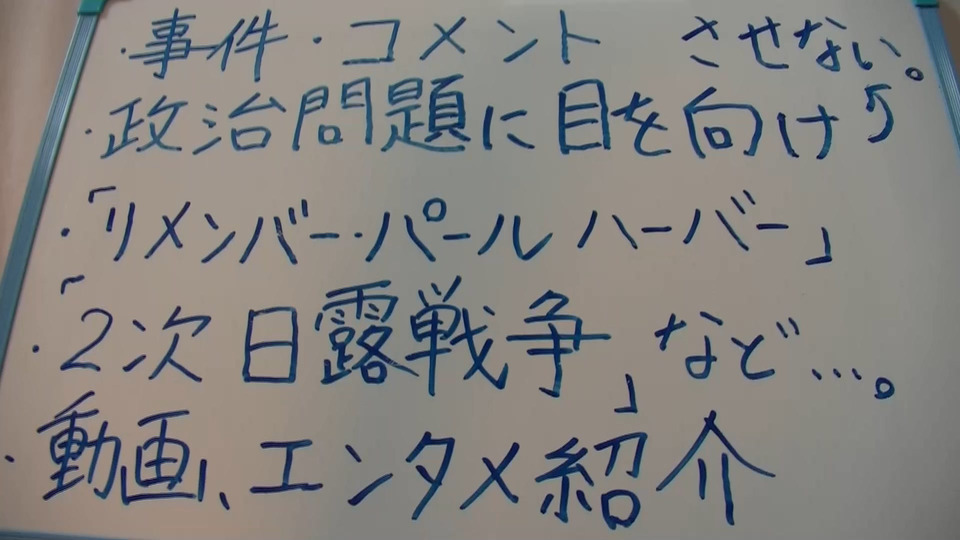 ・事件・コメント させない。
・政治問題に目を向け↰
・「リメンバー・パール ハーバー」
・「2次 日露戦争」など…。
・動画、エンタメ紹介